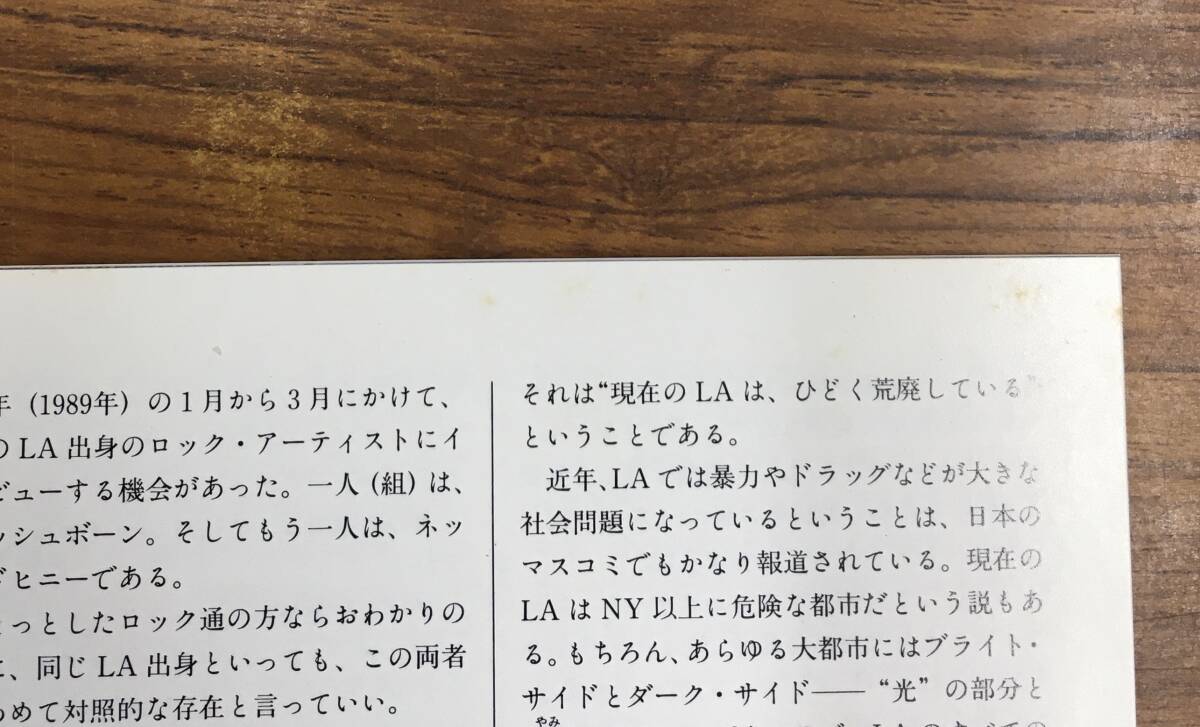 年 (1989年) の1月から3月にかけて、
のLA出身のロック・アーティストにイ
ビューする機会があった。一人(組)は、
ッシュボーン。そしてもう一人は、ネッ
ドヒニーである。
ょっとしたロック通の方ならおわかりの
に、同じLA出身といっても、この両者
めて対照的な存在と言っていい。
それは“現在のLAは、ひどく荒廃している”
ということである。
近年、LAでは暴力やドラッグなどが大きな
社会問題になっているということは、日本の
マスコミでもかなり報道されている。現在の
LAはNY以上に危険な都市だという説もあ
る。もちろん、あらゆる大都市にはブライト・
サイドとダーク・サイド――“光”の部分と
やみ